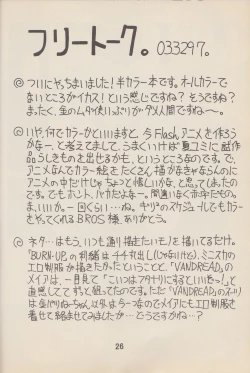 フリートーク。033297。
◎ついにやっちまいました!半カラー本です。オールカラーで
ないところがイカス!という感じですね?そうですね?
まったく、金のムダ使いっぷりがダメ人間ですね〜。
◎いや、何でカラーかといいますと、今Flashアニメを作ろう
かなー、と考えてまして、うまくいけば夏コミに試作
品らしきものを出せるかも、というところなのです。で、
アニメなんでカラー絵をたくさん描かなきゃならんのに
アニメの中だけじゃちょっと惜しいかな、と思ってしまったの
です。でもホント、バカだよなー。間違いなく赤字だもの。
ま、いいか。一回くらい…ね。ギリのスケジュールでもカラー
をやってくれるBROS様、ありがとう。
◎ネタ…はもう、いつも通り描きたいモノを描いてるだけ。
「BURN-UP」の
エロ制服が描きたかったということと、「VANDREAD」の
メイアは、一目見て「こいつはフタナリにするといいぞっ!」と
直感してずっと狙ってたのです。ただ「VANDREAD」の
着せて絡ませてみましたが…どうですかね…?
26